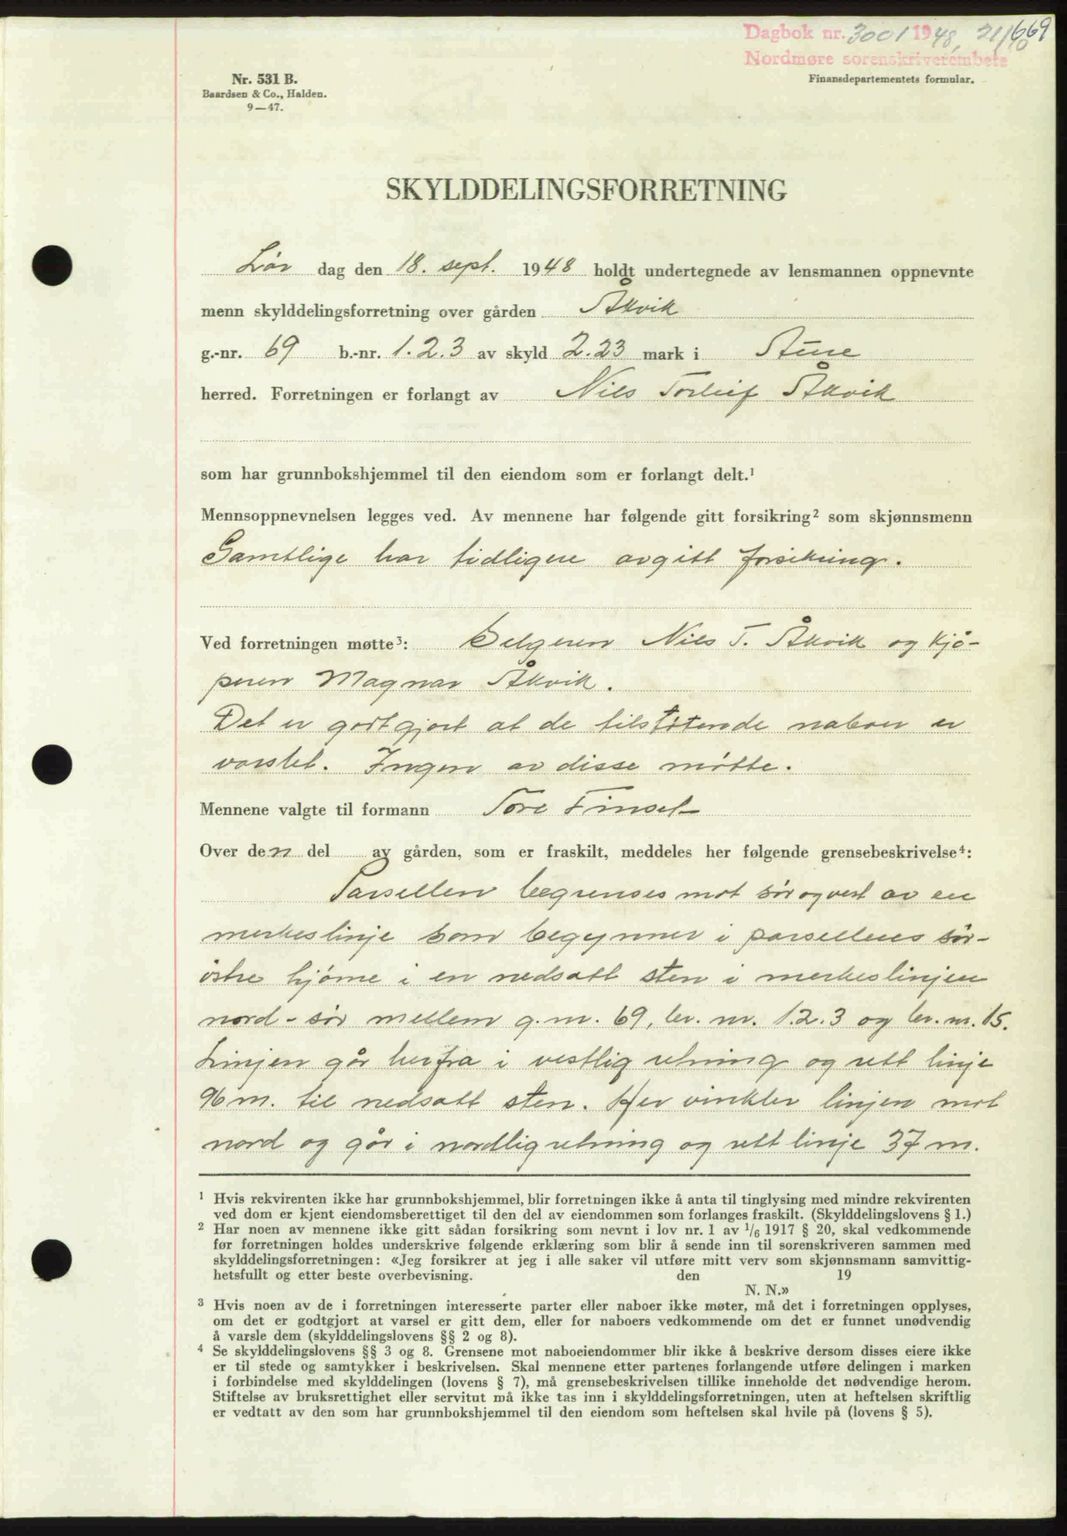 Dagbok nr. 3001 1948, 21/10 669
Nordmøre sorenskriverembete
Nr. 531 B.
Baardsen & Co., Halden.
9—47.
Finansdepartementets formular.
SKYLDDELINGSFORRETNING
Lør dag den 18. sept. 1948 holdt undertegnede av lensmannen oppnevnte
menn skylddelingsforretning over gården Åkvik
g.-nr. 69 b.-nr. 1.2.3 av skyld 2.23 mark i
herred. Forretningen er forlangt av Nils Torleif Åkvik
som har grunnbokshjemmel til den eiendom som er forlangt delt.¹
Mennsoppnevnelsen legges ved. Av mennene har følgende gitt forsikring² som skjønnsmenn
Samtlige har tidligere avgitt forsikring.
Ved forretningen møtte³: Selgeren Nils T. Åkvik og kjø-
peren Magnar Åkvik.
Det er godtgjort at de tilstøtende naboer er
varslet. Ingen av disse møtte.
Mennene valgte til formann Tore Finset
Over den del av gården, som er fraskilt, meddeles her følgende grensebeskrivelse⁴:
Parsellen begrenses mot sør og vest av en
merkeslinje som begynner i parsellens sør-
østre hjørne i en nedsatt sten i merkeslinjen
nord-sør mellem g.nr. 69, br. nr. 1.2.3 og br.nr. 15.
Linjen går herfra i vestlig retning og rett linje
96 m. til nedsatt sten. Her vinkler linjen mot
nord og går i nordlig retning og rett linje 37 m.
¹ Hvis rekvirenten ikke har grunnbokshjemmel, blir forretningen ikke å anta til tinglysing med mindre rekvirenten
ved dom er kjent eiendomsberettiget til den del av eiendommen som forlanges fraskilt. (Skylddelingslovens § 1.)
² Har noen av mennene ikke gitt sådan forsikring som nevnt i lov nr. 1 av 1/6 1917 § 20, skal vedkommende
før forretningen holdes underskrive følgende erklæring som blir å sende inn til sorenskriveren sammen med
skylddelingsforretningen: «Jeg forsikrer at jeg i alle saker vil utføre mitt verv som skjønnsmann samvittig-
hetsfullt og etter beste overbevisning. den 19
N. N.»
³ Hvis noen av de i forretningen interesserte parter eller naboer ikke møter, må det i forretningen opplyses,
om det er godtgjort at varsel er gitt dem, eller for naboers vedkommende om det er funnet unødvendig
å varsle dem (skylddelingslovens §§ 2 og 8).
⁴ Se skylddelingslovens §§ 3 og 8. Grensene mot naboeiendommer blir ikke å beskrive dersom disses eiere ikke
er til stede og samtykker i beskrivelsen. Skal mennene etter partenes forlangende utføre delingen i marken
i forbindelse med skylddelingen (lovens § 7), må grensebeskrivelsen tillike inneholde det nødvendige herom.
Stiftelse av bruksrettighet eller servitut må ikke tas inn i skylddelingsforretningen, uten at heftelsen skriftlig
er vedtatt av den som har grunnbokshjemmel til den eiendom som heftelsen skal hvile på (lovens § 5).